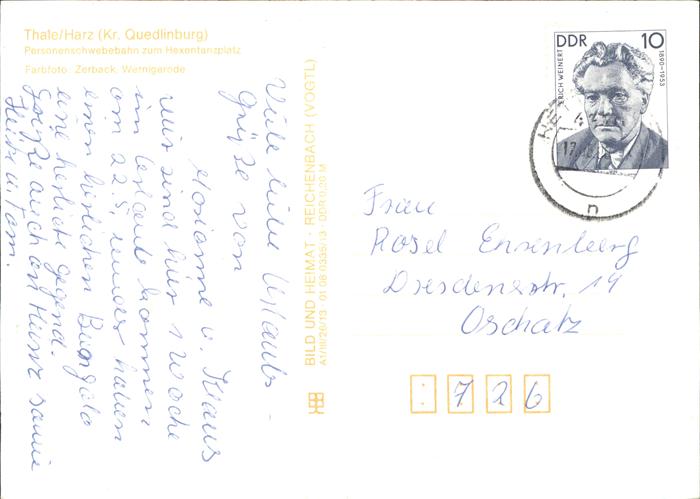 Thale/Harz (Kr. Quedlinburg)
Personenschwebebahn zum Hexentanzplatz
Farbfoto: Zerback, Wernigerode
Viele liebe Urlaubs-
grüße von
Marianne u. Klaus
wir sind hier 1 Woche
im Urlaub kommen
am 22.5 wieder haben
einen herrlichen Bungalo
eine herliche gegend.
Grüße auch an Heinz sowie
Heike u. Tom.
BILD UND HEIMAT · REICHENBACH (VOGTL)
A1/III/26/13 01 06 0335/13 DDR 0,20 M
DDR 10
ERICH WEINERT
1890-1953
n
Frau
Rosel Ensenberg
Dresdenerstr. 19
Oschatz
726